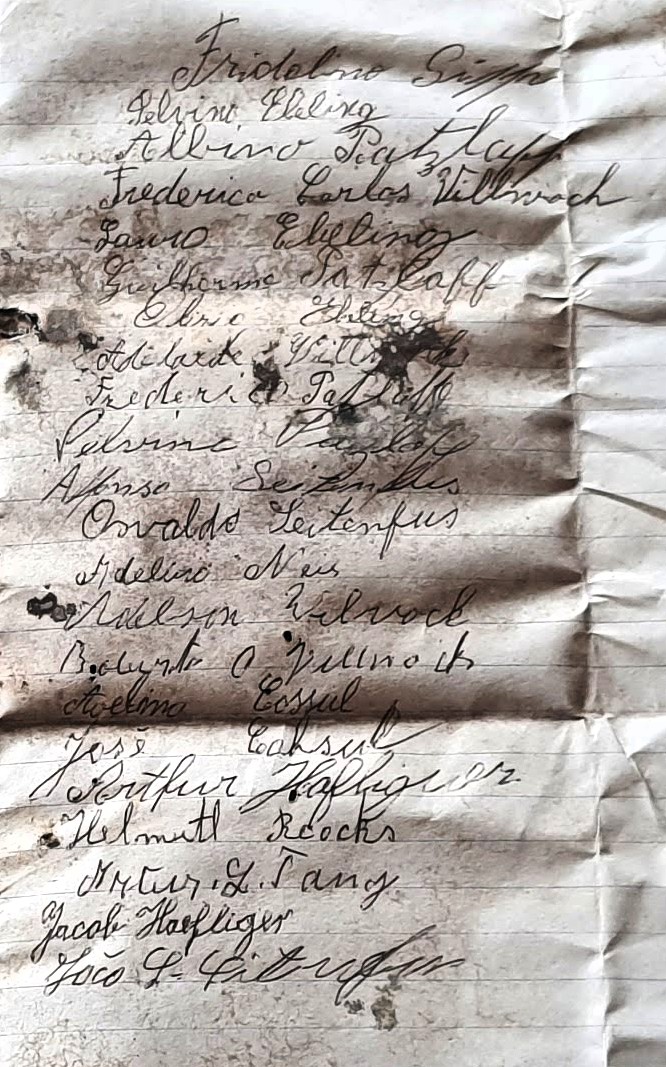 Fridolino
Pelvino Ebeling
Albino Patzlaff
Frederico Carlos Villwoch
Lauro Ebeling
Guilherme Patzlaff
Ebling
Adelaide
Frederico Patzlaff
Pelvino
Afonso Seitenfus
Osvaldo Seitenfus
Adelino Neis
Adelson Vilvock
O Villwock
Avelino Cossul
José Cahsul
Arthur Hafliguer
Helmutl Roocks
Artur. L. Tang
Jacob Haefliger
João L.